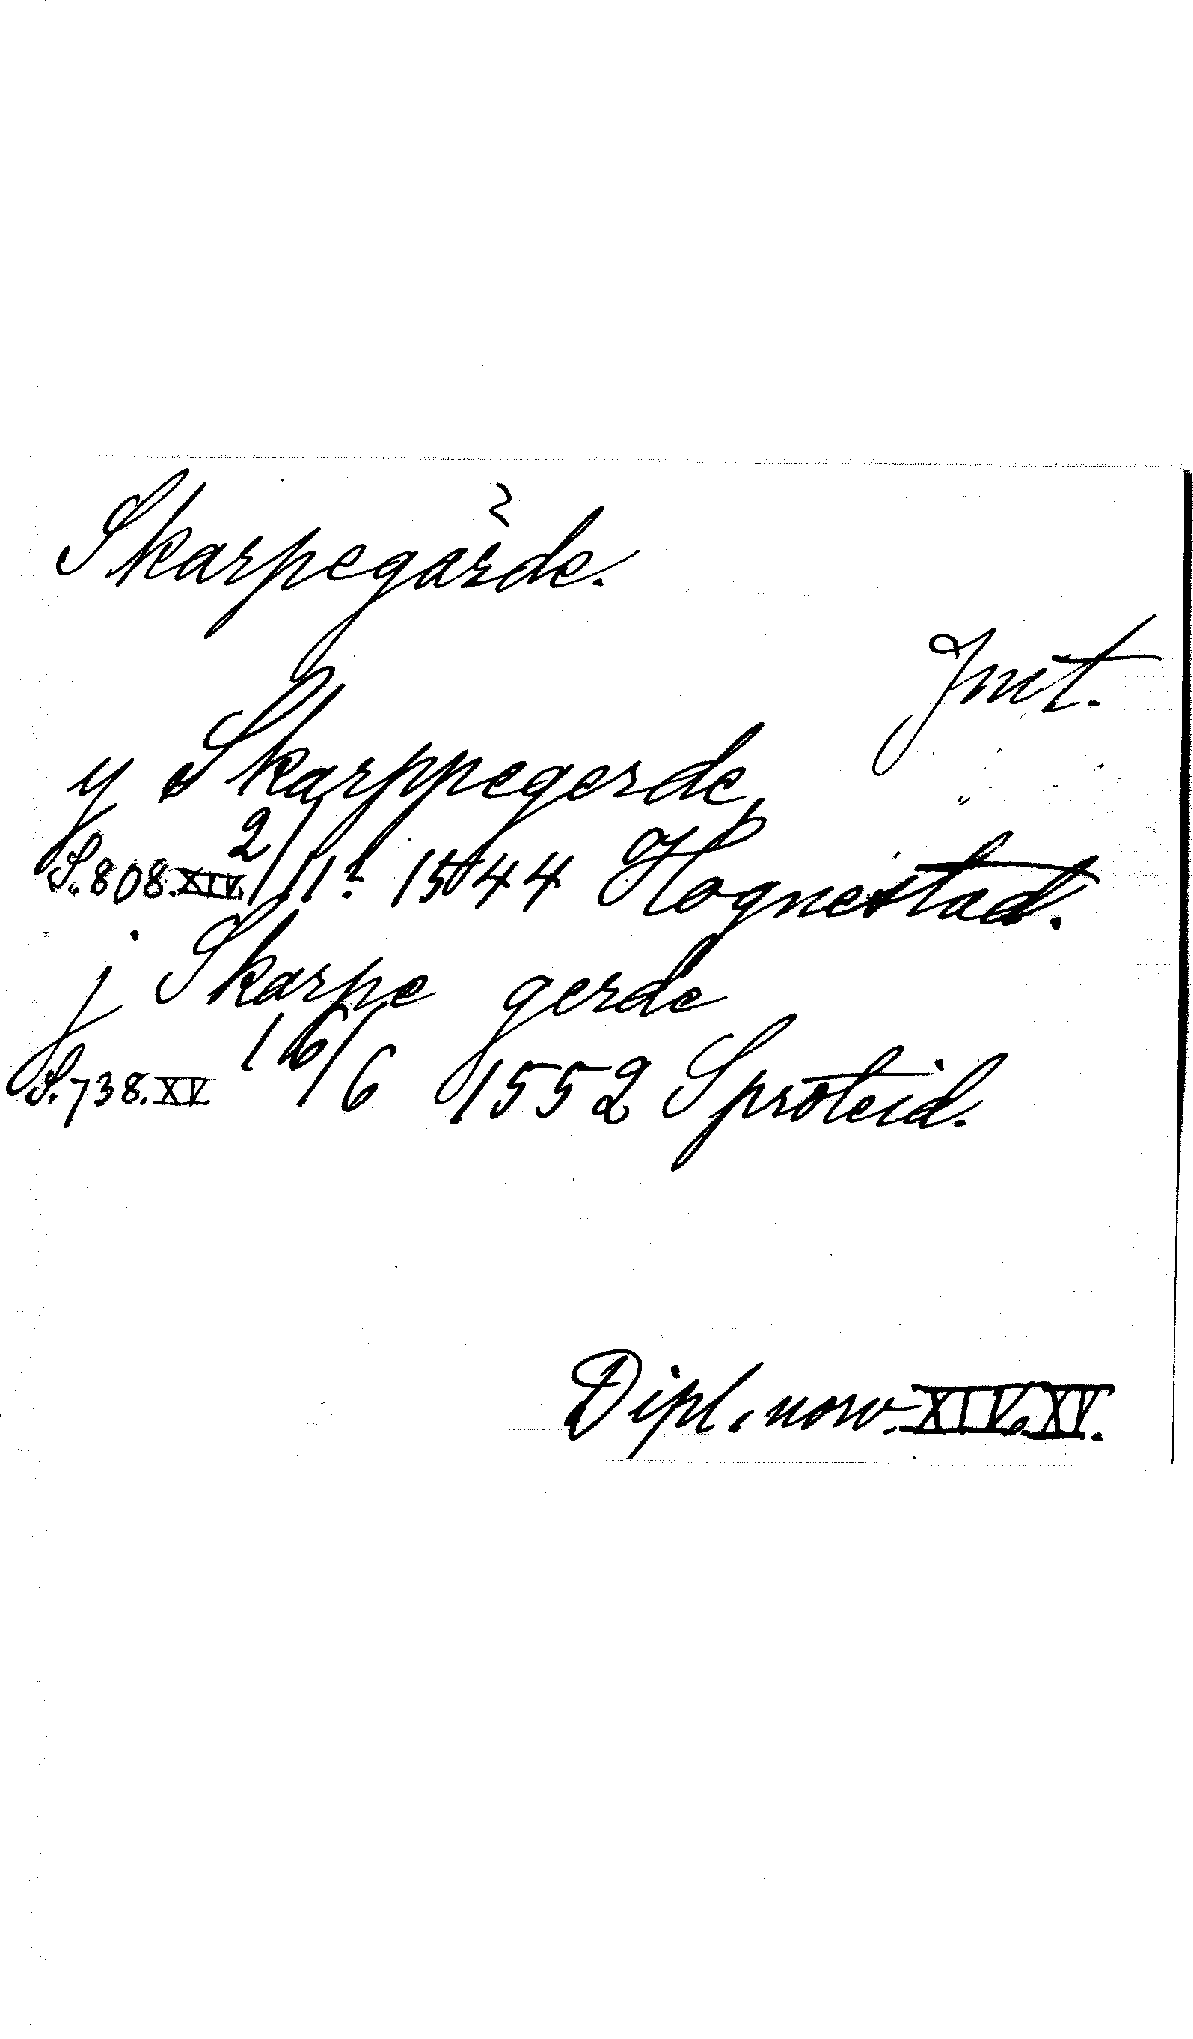 Skarpegärde.
Jmt.
y Skarppegerde,
S. 808. XIV. 2/11? 1544 Hognestad.
j Skarpe gerde
S. 738. XV 16/6 1552 Sproteid.
Dipl. norv. XIV. XV.